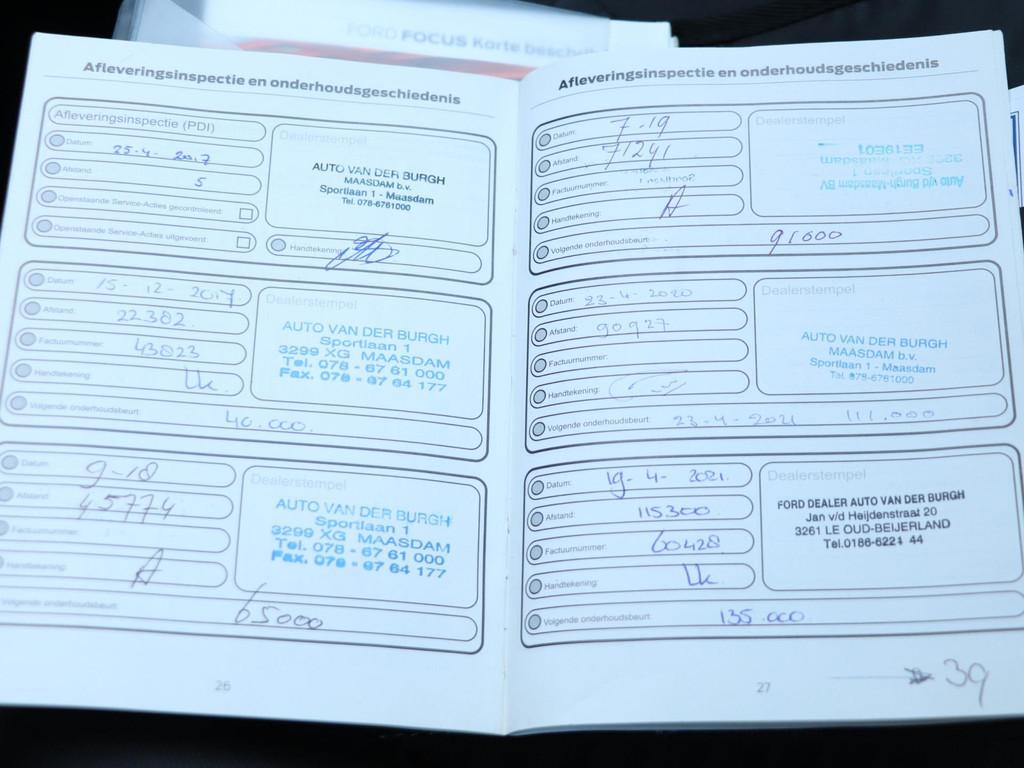 FORD FOCUS Karte
Afleveringsinspectie en onderhoudsgeschiedenis
Afleveringsinspectie (PDI)
Datum: 25-4-2017
Afstand: 5
Openstaande Service-Acties gecontroleerd:
Openstaande Service-Acties uitgevoerd:
Dealerstempel
AUTO VAN DER BURGH
MAASDAM b.v.
Sportlaan 1 - Maasdam
Tel. 078-6761000
Handtekening:
Datum: 15-12-2017
Afstand: 22382
Factuurnummer: 43823
Handtekening:
Volgende onderhoudsbeurt: 40.000.
Dealerstempel
AUTO VAN DER BURGH
Sportlaan 1
3299 XG MAASDAM
Tel. 078 - 67 61 000
Fax. 078 - 67 64 177
Datum: 9-18
Afstand: 45774
Factuurnummer:
Handtekening:
Volgende onderhoudsbeurt: 65000
Dealerstempel
AUTO VAN DER BURGH
Sportlaan 1
3299 XG MAASDAM
Tel. 078 - 67 61 000
Fax. 078 - 67 64 177
26
Afleveringsinspectie en onderhoudsgeschiedenis
Datum: 7-19
Afstand: 71241
Factuurnummer:
Handtekening:
Volgende onderhoudsbeurt: 91000
Dealerstempel
Auto v/d Burgh-Maasdam BV
Sportlaan 1
Maasdam
EE19E01
Datum: 23-4-2020
Afstand: 90927
Factuurnummer:
Handtekening:
Volgende onderhoudsbeurt: 23-4-2021 111.000
Dealerstempel
AUTO VAN DER BURGH
MAASDAM b.v.
Sportlaan 1 - Maasdam
Tel. 078-6761000
Datum: 19-4-2021.
Afstand: 115300
Factuurnummer: 60428
Handtekening:
Volgende onderhoudsbeurt: 135.000
Dealerstempel
FORD DEALER AUTO VAN DER BURGH
Jan v/d Heijdenstraat 20
3261 LE OUD-BEIJERLAND
Tel.0186-6221 44
27
39